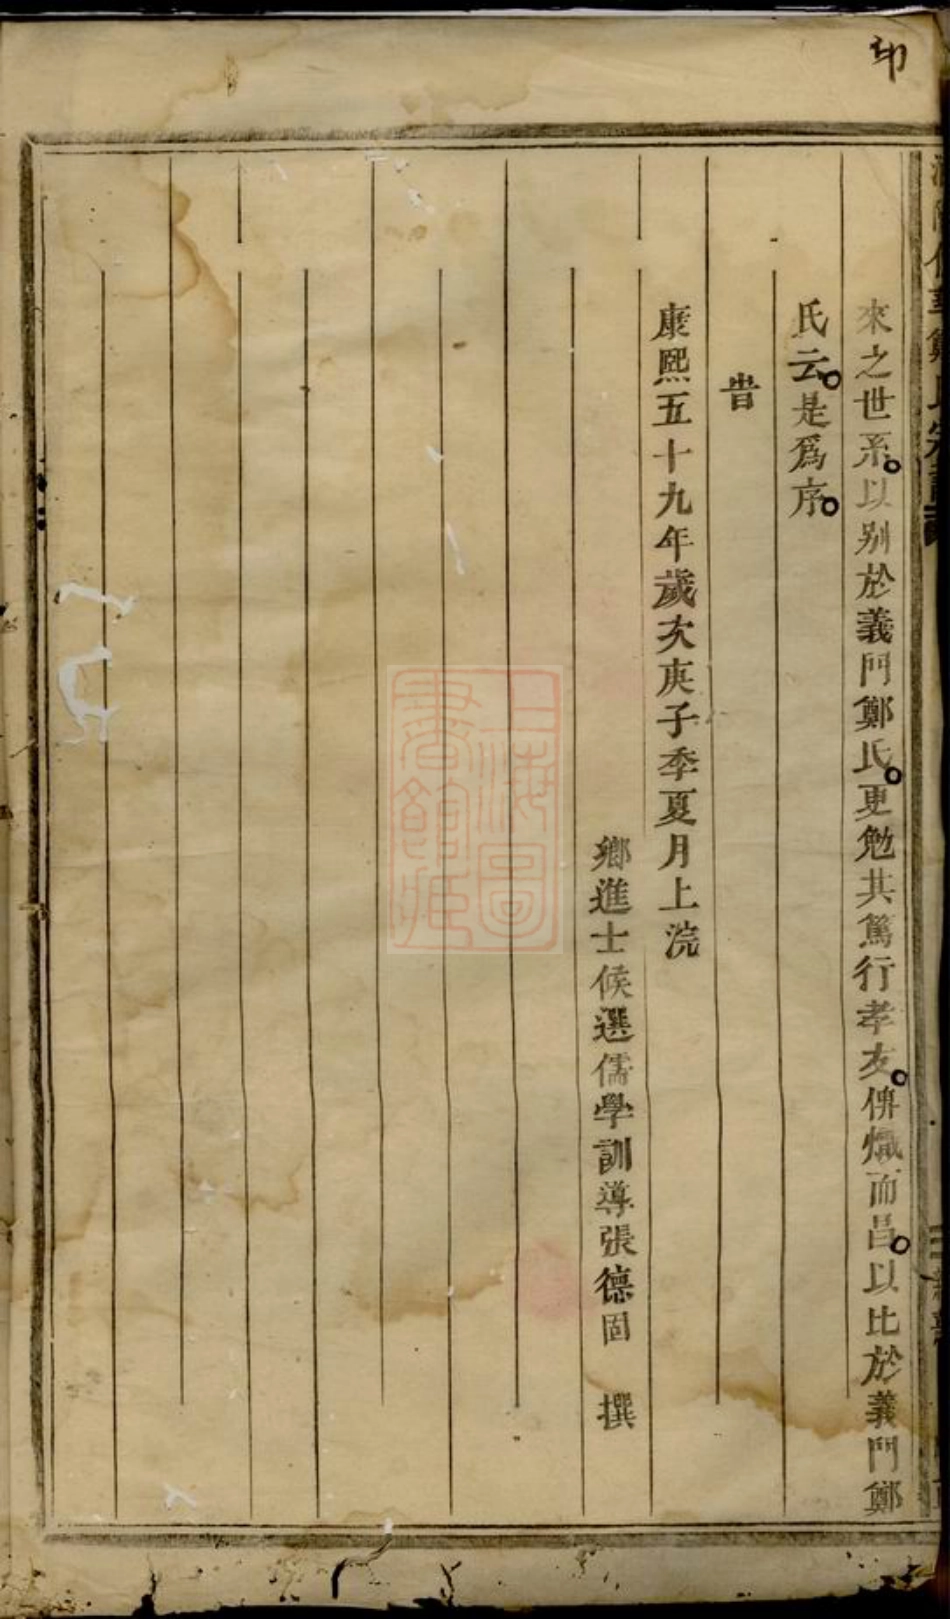 印
來之世系。以别於義門鄭氏。更勉其篤行孝友。俾熾而昌。以比於義門鄭
氏云。是爲序。
旹
康熙五十九年歲次庚子季夏月上浣
鄉進士候選儒學訓導張德固 撰
上海圖書館藏